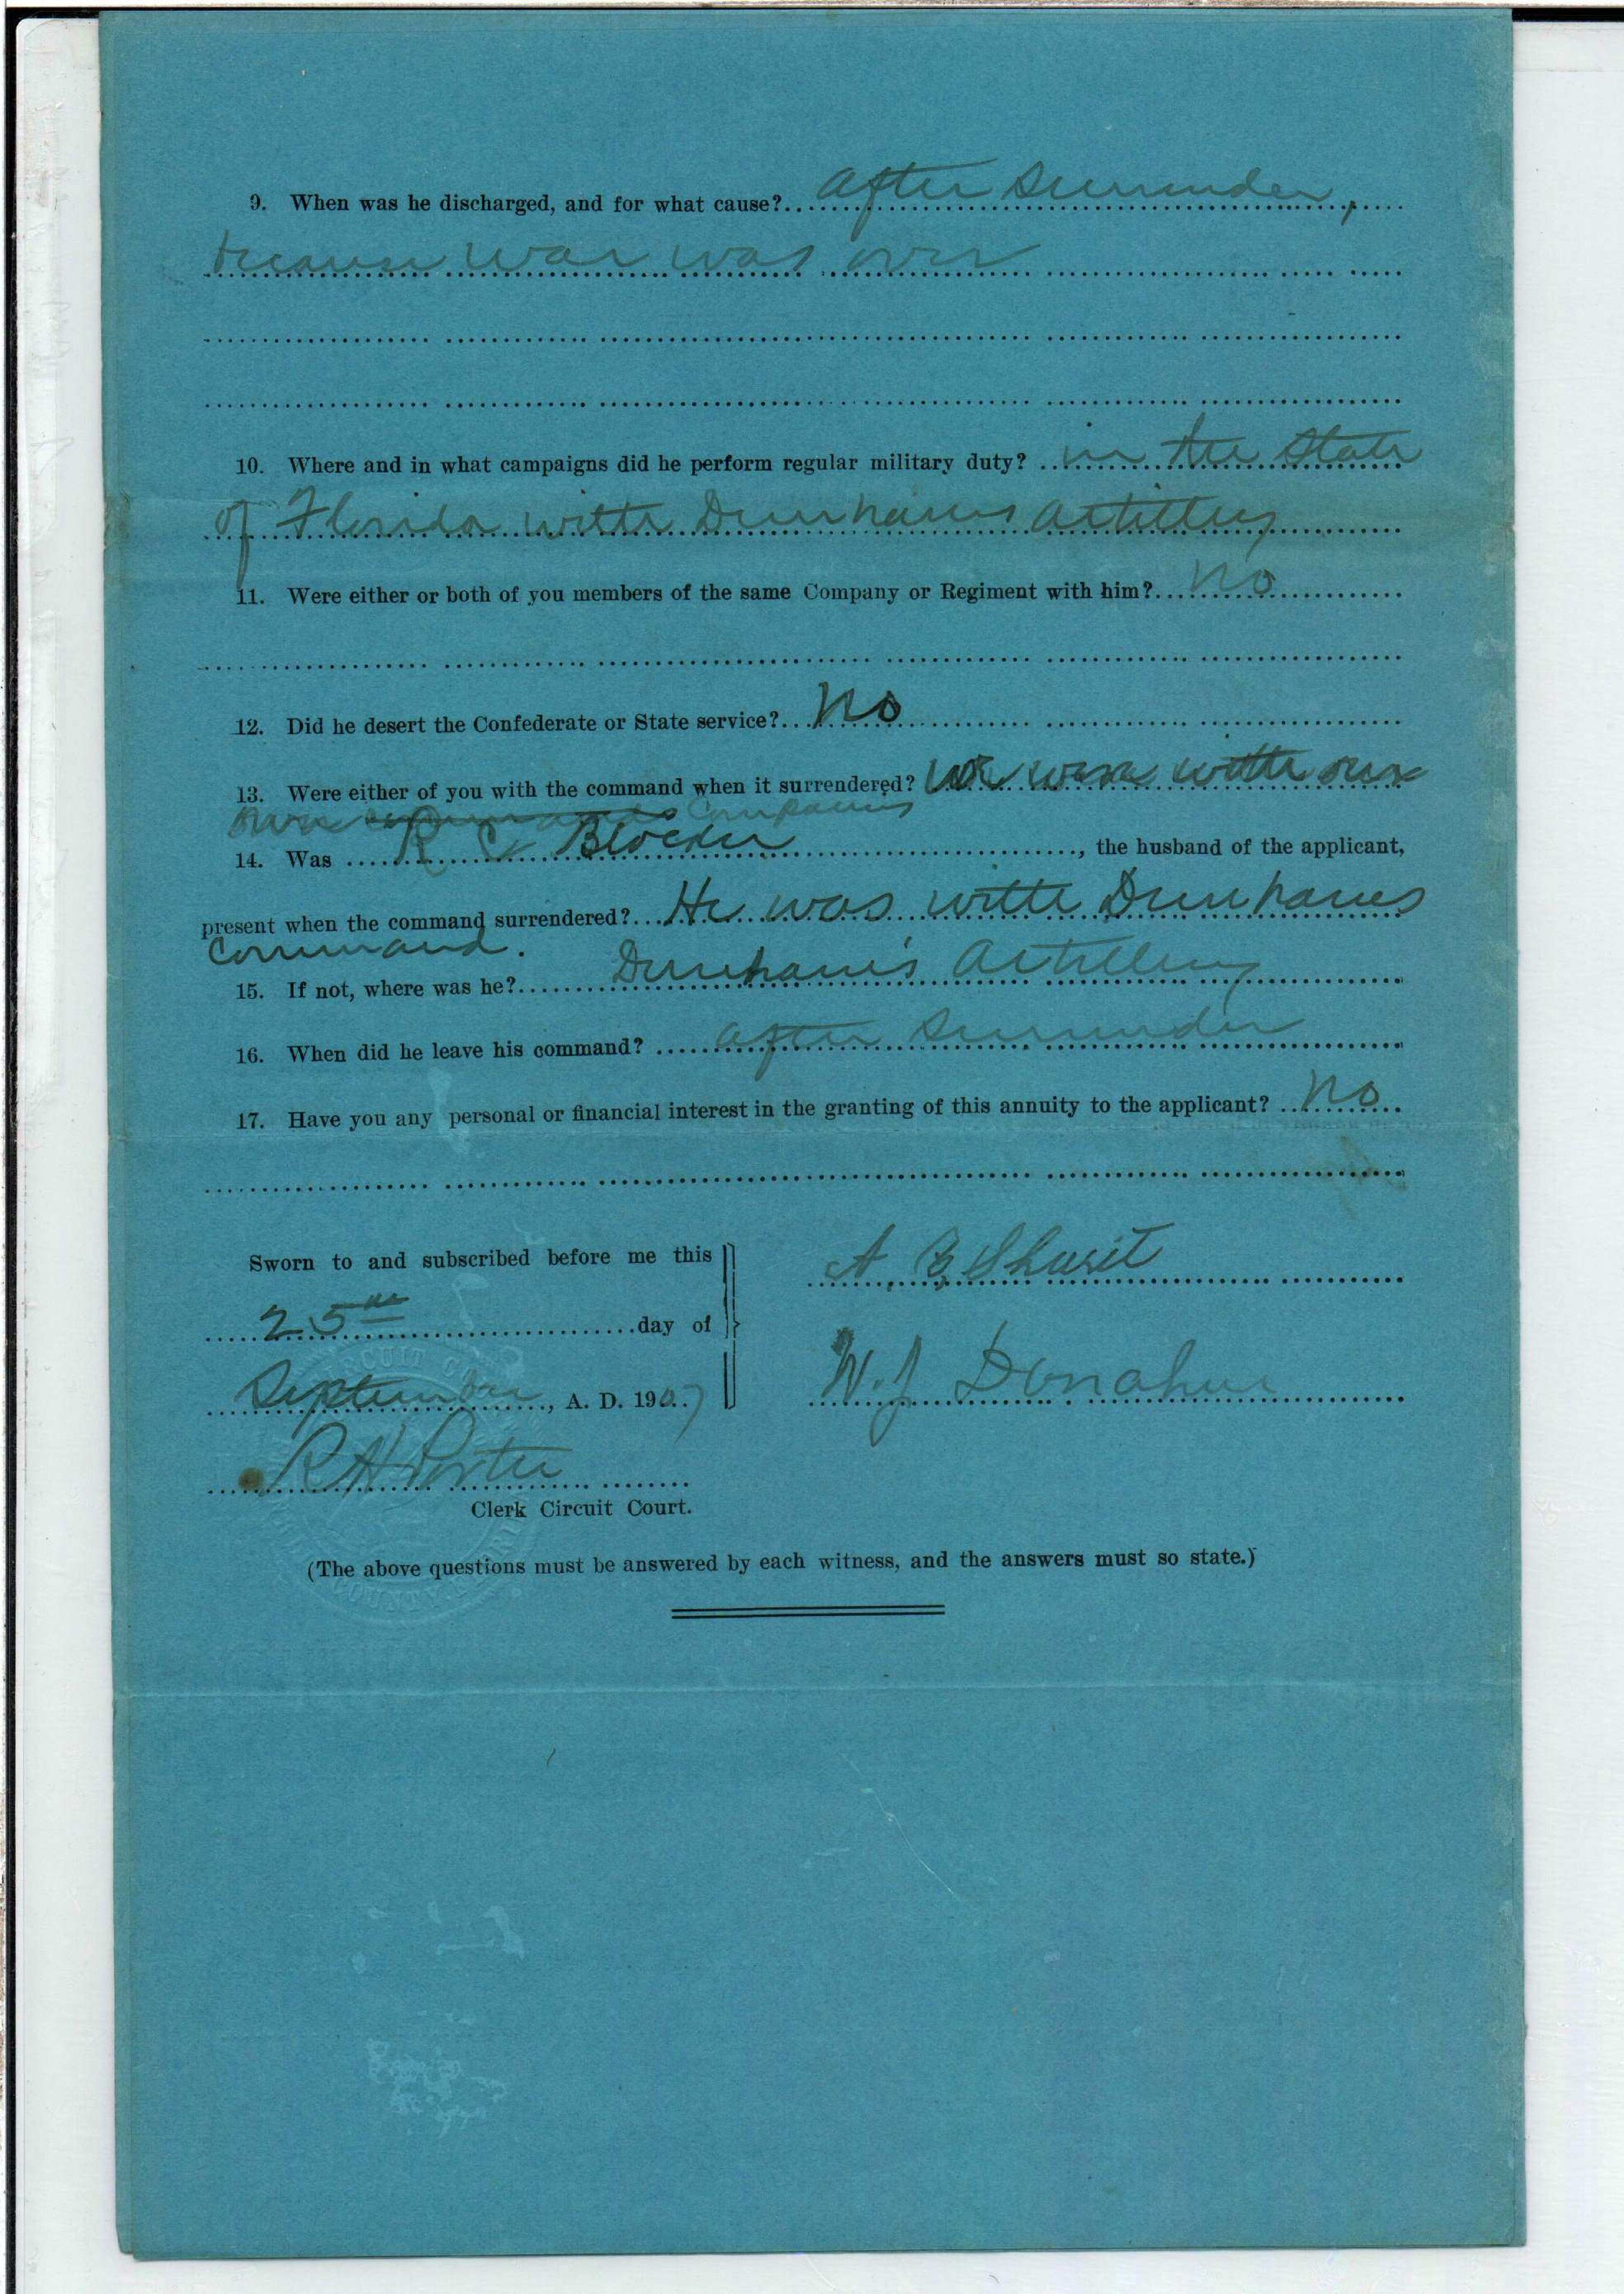 9. When was he discharged, and for what cause? After Surrender,
because war was over
10. Where and in what campaigns did he perform regular military duty? in the State
of Florida with Dunhams Artillery
11. Were either or both of you members of the same Company or Regiment with him? No
12. Did he desert the Confederate or State service? No
13. Were either of you with the command when it surrendered? We were with our
own commands Companies
14. Was R C Blocker, the husband of the applicant,
present when the command surrendered? He was with Dunhams
Command.
15. If not, where was he? Dunham's Artillery
16. When did he leave his command? after Surrender
17. Have you any personal or financial interest in the granting of this annuity to the applicant? No
Sworn to and subscribed before me this
25th day of
September, A. D. 1907
A. B. Shusit
W. J. Donahue
R H Porter
Clerk Circuit Court.
(The above questions must be answered by each witness, and the answers must so state.)
CIRCUIT CO
COUNTY